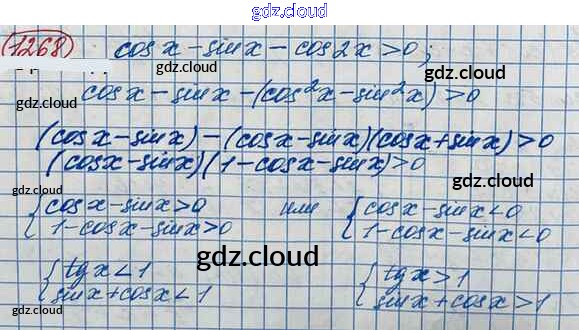 gdz.cloud
gdz.cloud
1268 cos x - sin x - cos 2x > 0;
gdz.cloud gdz.cloud
cos x - sin x - (cos²x - sin²x) > 0
(cos x - sin x) - (cos x - sin x)(cos x + sin x) > 0
(cos x - sin x)(1 - cos x - sin x) > 0
gdz.cloud gdz.cloud
{ cos x - sin x > 0 или { cos x - sin x < 0
{ 1 - cos x - sin x > 0 { 1 - cos x - sin x < 0
gdz.cloud
{ tg x < 1 { tg x > 1
{ sin x + cos x < 1 { sin x + cos x > 1
gdz.cloud gdz.cloud